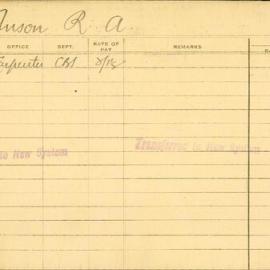 nson R. A.
OFFICE SEPT. RATE OF PAY REMARKS
arpenter CBS
to New System Transferred to New System